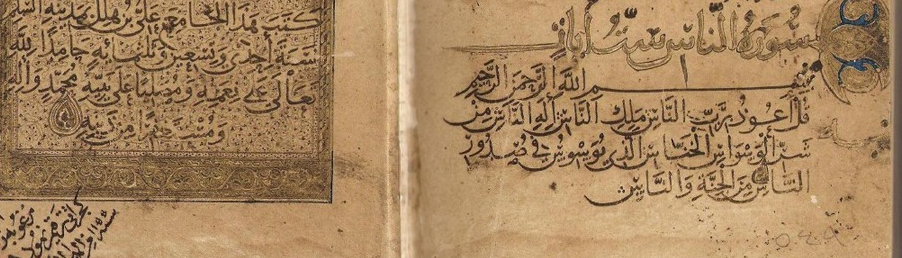 سورة الناس ست آيات
بسم الله الرحمن الرحيم
قل أعوذ برب الناس ملك الناس إله الناس من
شر الوسواس الخناس الذي يوسوس في صدور
الناس من الجنة والناس
كتب هذا الجامع علي بن هلال بمدينة السلم
سنة احدى وتسعين وثلثمائه حامدا لله
تعالى على نعمه ومصليا على نبيه محمد وآله
ومستغفرا من ذنبه